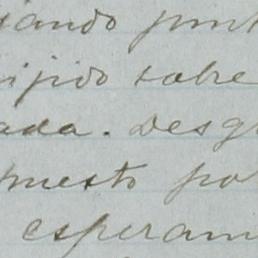 iando punt
ijido sobre
ada. Desg
puesto po
esperam